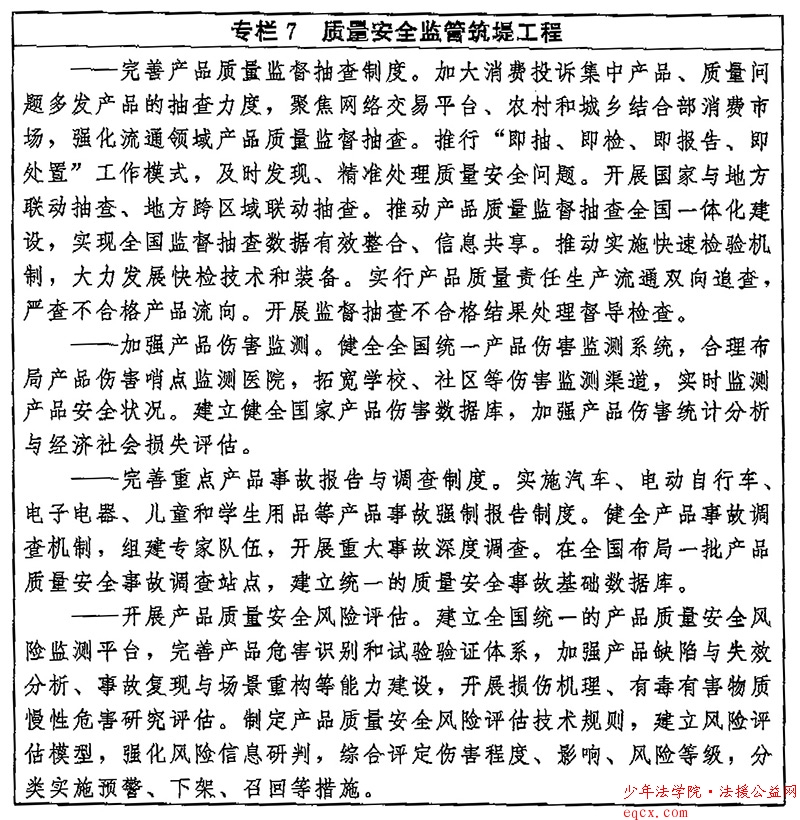 专栏 7　质量安全监管筑堤工程
——完善产品质量监督抽查制度。加大消费投诉集中产品、质量问
题多发产品的抽查力度，聚焦网络交易平台、农村和城乡结合部消费市
场，强化流通领域产品质量监督抽查。推行“即抽、即检、即报告、即
处置”工作模式，及时发现、精准处理质量安全问题。开展国家与地方
联动抽查、地方跨区域联动抽查。推动产品质量监督抽查全国一体化建
设，实现全国监督抽查数据有效整合、信息共享。推动实施快速检验机
制，大力发展快检技术和装备。实行产品质量责任生产流通双向追查，
严查不合格产品流向。开展监督抽查不合格结果处理督导检查。
——加强产品伤害监测。健全全国统一产品伤害监测系统，合理布
局产品伤害哨点监测医院，拓宽学校、社区等伤害监测渠道，实时监测
产品安全状况。建立健全国家产品伤害数据库，加强产品伤害统计分析
与经济社会损失评估。
——完善重点产品事故报告与调查制度。实施汽车、电动自行车、
电子电器、儿童和学生用品等产品事故强制报告制度。健全产品事故调
查机制，组建专家队伍，开展重大事故深度调查。在全国布局一批产品
质量安全事故调查站点，建立统一的质量安全事故基础数据库。
——开展产品质量安全风险评估。建立全国统一的产品质量安全风
险监测平台，完善产品危害识别和试验验证体系，加强产品缺陷与失效
分析、事故复现与场景重构等能力建设，开展损伤机理、有毒有害物质
慢性危害研究评估。制定产品质量安全风险评估技术规则，建立风险评
估模型，强化风险信息研判，综合评定伤害程度、影响、风险等级，分
类实施预警、下架、召回等措施。
少年法学院·法援公益网
eqcx.com